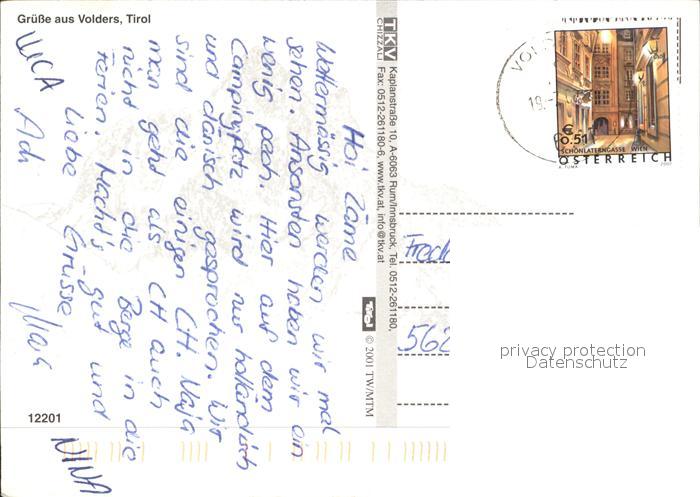 Grüße aus Volders, Tirol
Hoi Zäme
Wettermässig werden wir mal
sehen. Ansonsten haben wir ein
wenig pech. Hier auf dem
Campingplatz wird nur holländisch
und dänisch gesprochen. Wir
sind die einigen CH. Naja
man geht als CH auch
nicht in die Berge in die
Ferien. Macht's gut und
Liebe Grüsse
Adi
LUCA
NINA
12201
TKV
CHIZZALI
Kaplanstraße 10, A-6063 Rum/Innsbruck, Tel. 0512-261180,
Fax: 0512-261180-6, www.tkv.at, info@tkv.at
Tirol
© 2001 TW/MTM
VOL
19.
€
0.51
SCHÖNLATERNGASSE WIEN
ÖSTERREICH
A. TUMA
2002
562
privacy protection
Datenschutz